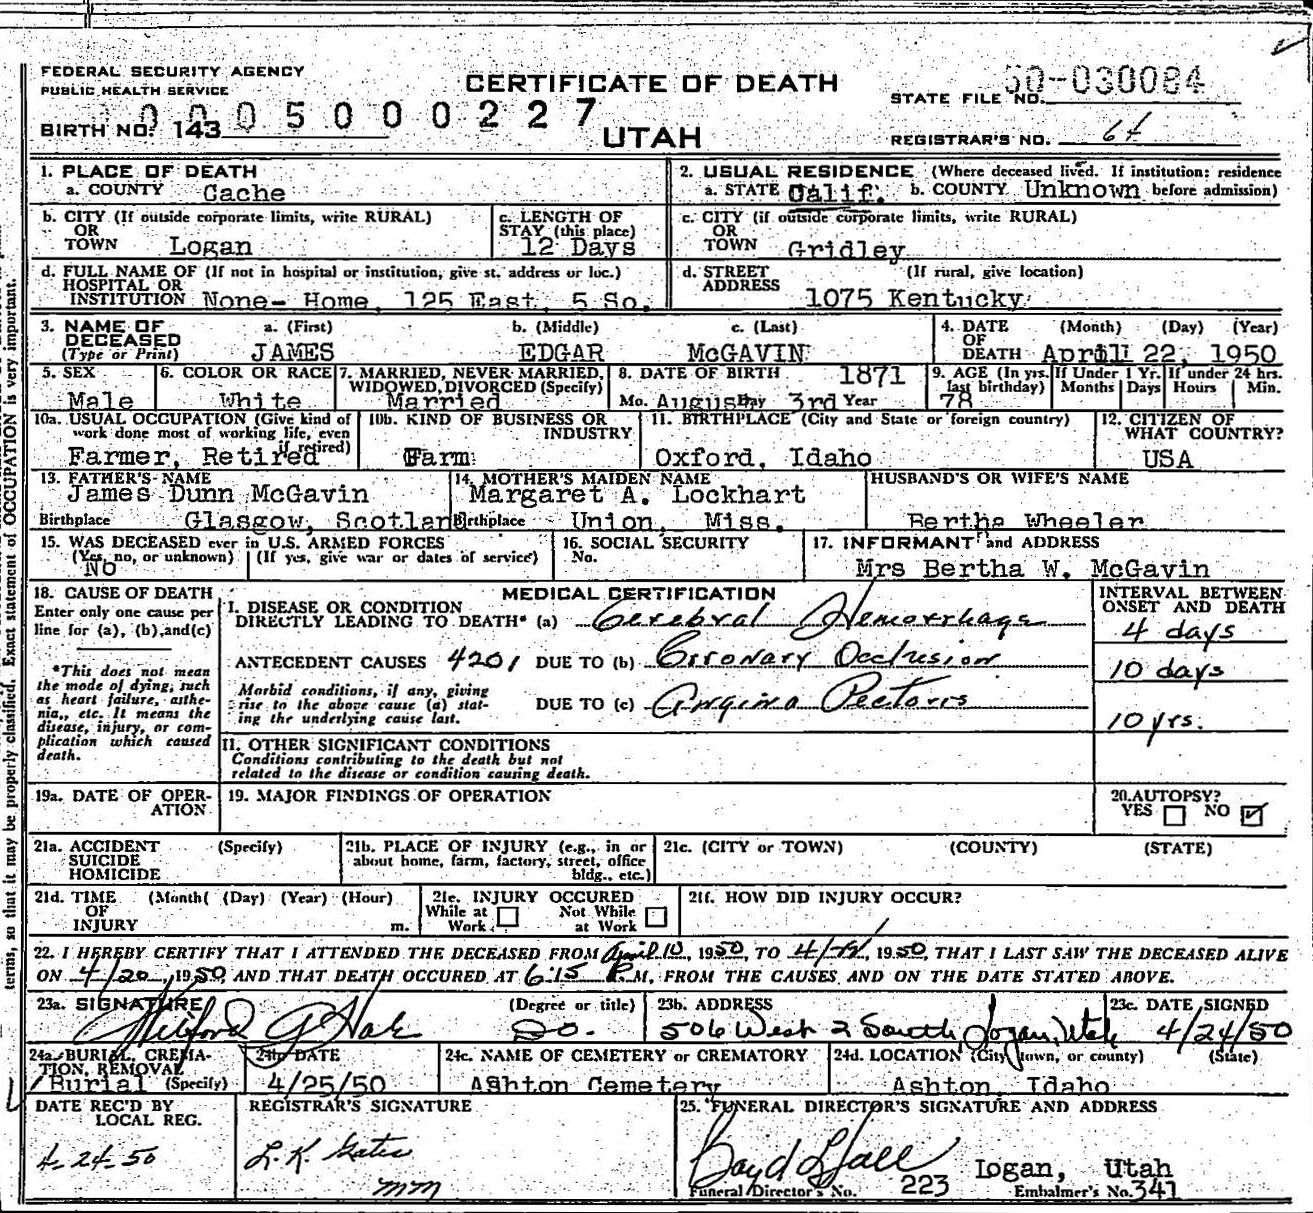 FEDERAL SECURITY AGENCY
PUBLIC HEALTH SERVICE
CERTIFICATE OF DEATH
UTAH
STATE FILE NO. 50-030084
0005000227
BIRTH NO. 143
REGISTRAR'S NO. 64
1. PLACE OF DEATH
a. COUNTY Cache
2. USUAL RESIDENCE (Where deceased lived. If institution: residence before admission)
a. STATE Calif. b. COUNTY Unknown
b. CITY (If outside corporate limits, write RURAL)
OR
TOWN Logan
c. LENGTH OF
STAY (this place)
12 Days
c. CITY (if outside corporate limits, write RURAL)
OR
TOWN Gridley
d. FULL NAME OF (If not in hospital or institution, give st. address or loc.)
HOSPITAL OR
INSTITUTION None- Home, 125 East, 5 So.
d. STREET (If rural, give location)
ADDRESS
1075 Kentucky
3. NAME OF
DECEASED
(Type or Print)
a. (First) b. (Middle) c. (Last)
JAMES EDGAR McGAVIN
4. DATE (Month) (Day) (Year)
OF
DEATH April 22, 1950
5. SEX
Male
6. COLOR OR RACE
White
7. MARRIED, NEVER MARRIED,
WIDOWED, DIVORCED (Specify)
Married
8. DATE OF BIRTH 1871
Mo. August Day 3rd Year
9. AGE (In yrs. last birthday) If Under 1 Yr. If under 24 hrs.
Months Days Hours Min.
78
10a. USUAL OCCUPATION (Give kind of
work done most of working life, even
if retired)
Farmer, Retired
10b. KIND OF BUSINESS OR
INDUSTRY
Farm
11. BIRTHPLACE (City and State or foreign country)
Oxford, Idaho
12. CITIZEN OF
WHAT COUNTRY?
USA
13. FATHER'S NAME
James Dunn McGavin
Birthplace Glasgow, Scotland
14. MOTHER'S MAIDEN NAME
Margaret A. Lockhart
Birthplace Union, Miss.
HUSBAND'S OR WIFE'S NAME
Bertha Wheeler
15. WAS DECEASED ever in U.S. ARMED FORCES
(Yes, no, or unknown) (If yes, give war or dates of service)
No
16. SOCIAL SECURITY
No.
17. INFORMANT and ADDRESS
Mrs Bertha W. McGavin
18. CAUSE OF DEATH
Enter only one cause per
line for (a), (b), and (c)
*This does not mean
the mode of dying, such
as heart failure, asthe-
nia, etc. It means the
disease, injury, or com-
plication which caused
death.
MEDICAL CERTIFICATION
INTERVAL BETWEEN
ONSET AND DEATH
I. DISEASE OR CONDITION
DIRECTLY LEADING TO DEATH* (a) Cerebral Hemorrhage
4 days
ANTECEDENT CAUSES 4201 DUE TO (b) Coronary Occlusion
10 days
Morbid conditions, if any, giving
rise to the above cause (a) stat-
ing the underlying cause last.
DUE TO (c) Angina Pectoris
10 yrs.
II. OTHER SIGNIFICANT CONDITIONS
Conditions contributing to the death but not
related to the disease or condition causing death.
19a. DATE OF OPER-
ATION
19. MAJOR FINDINGS OF OPERATION
20. AUTOPSY?
YES NO
21a. ACCIDENT (Specify)
SUICIDE
HOMICIDE
21b. PLACE OF INJURY (e.g., in or
about home, farm, factory, street, office
bldg., etc.)
21c. (CITY or TOWN) (COUNTY) (STATE)
21d. TIME (Month( (Day) (Year) (Hour)
OF
INJURY m.
21e. INJURY OCCURED
While at Work Not While at Work
21f. HOW DID INJURY OCCUR?
22. I HEREBY CERTIFY THAT I ATTENDED THE DECEASED FROM April 10, 1950, TO 1950, THAT I LAST SAW THE DECEASED ALIVE
ON 4/20, 1950 AND THAT DEATH OCCURED AT 6:15 P.M. FROM THE CAUSES AND ON THE DATE STATED ABOVE.
23a. SIGNATURE (Degree or title)
DO.
23b. ADDRESS
506 West 2 South Logan, Utah
23c. DATE SIGNED
4/24/50
24a. BURIAL, CREMA-
TION, REMOVAL
(Specify)
Burial
24b. DATE
4/25/50
24c. NAME OF CEMETERY or CREMATORY
Ashton Cemetery
24d. LOCATION (City, town, or county) (State)
Ashton, Idaho
DATE REC'D BY
LOCAL REG.
4-24-50
REGISTRAR'S SIGNATURE
mm
25. FUNERAL DIRECTOR'S SIGNATURE AND ADDRESS
Boyd Hall Logan, Utah
Funeral Director's No. 223 Embalmer's No. 341
terms, so that it may be properly classified. Exact statement of OCCUPATION is very important.